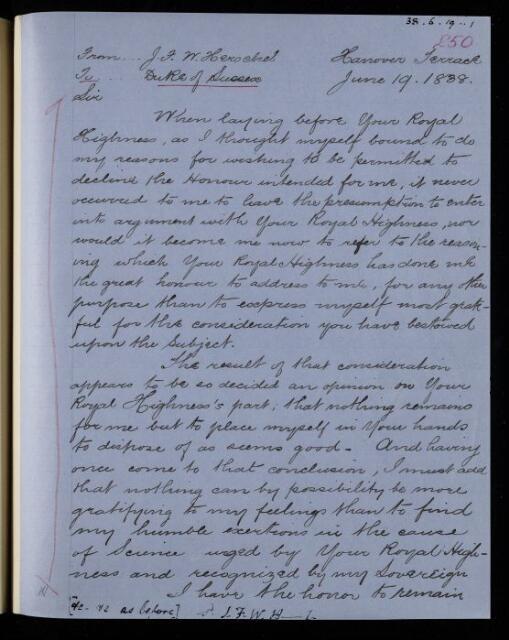 38.6.19..1
250
From... J. F. W. Herschel Hanover Terrace
To... Duke of Sussex June 19. 1838.
Sir
When laying before Your Royal
Highness, as I thought myself bound to do
my reasons for wishing to be permitted to
decline the Honour intended for me, it never
occurred to me to have the presumption to enter
into argument with Your Royal Highness, nor
would it become me now to refer to the reason-
ing which Your Royal Highness has done me
the great honour to address to me, for any other
purpose than to express myself most grate-
ful for the consideration you have bestowed
upon the subject.
The result of that consideration
appears to be so decided an opinion on Your
Royal Highness's part, that nothing remains
for me but to place myself in Your hands
to dispose of as seems good - And having
once come to that conclusion, I must add
that nothing can by possibility be more
gratifying to my feelings than to find
my humble exertions in the cause
of Science urged by Your Royal High-
ness and recognized by my Sovereign
I have the honor to remain
[&c. &c as before] J. F. W. H